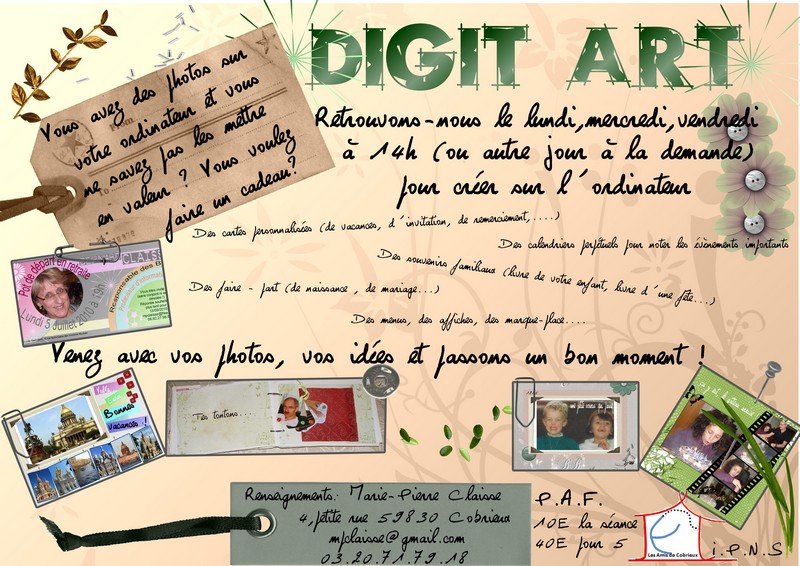 DIGIT ART
Vous avez des photos sur
votre ordinateur et vous
ne savez pas les mettre
en valeur ? Vous voulez
faire un cadeau?
From
To
Retrouvons-nous le lundi,mercredi,vendredi
à 14h (ou autre jour à la demande)
pour créer sur l'ordinateur
Des cartes personnalisées (de vacances, d'invitation, de remerciement,....)
Des calendriers perpétuels pour noter les évènements importants
Des souvenirs familiaux (livre de votre enfant, livre d'une fête...)
Des faire - part (de naissance , de mariage...)
Des menus, des affiches, des marque-place....
Pot de départ en retraite
Lundi 5 Juillet 2010 à 19h
CLAIS
Responsable des B
Venez avec vos photos, vos idées et passons un bon moment !
Bonnes
vacances !
Tes tontons....
Renseignements: Marie-Pierre Claisse
4,petite rue 59830 Cobrieux
mpclaisse@gmail.com
03.20.71.79.18
P.A.F.
10E la séance
40E pour 5
Les Amis de Cobrieux
i.P.N.S